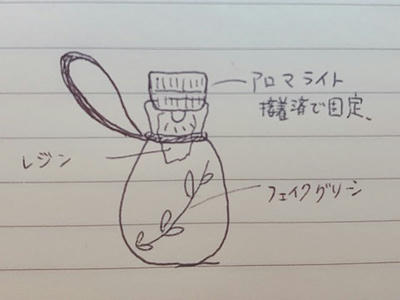 アロマライト
接着済で固定、
レジン
フェイクグリーン